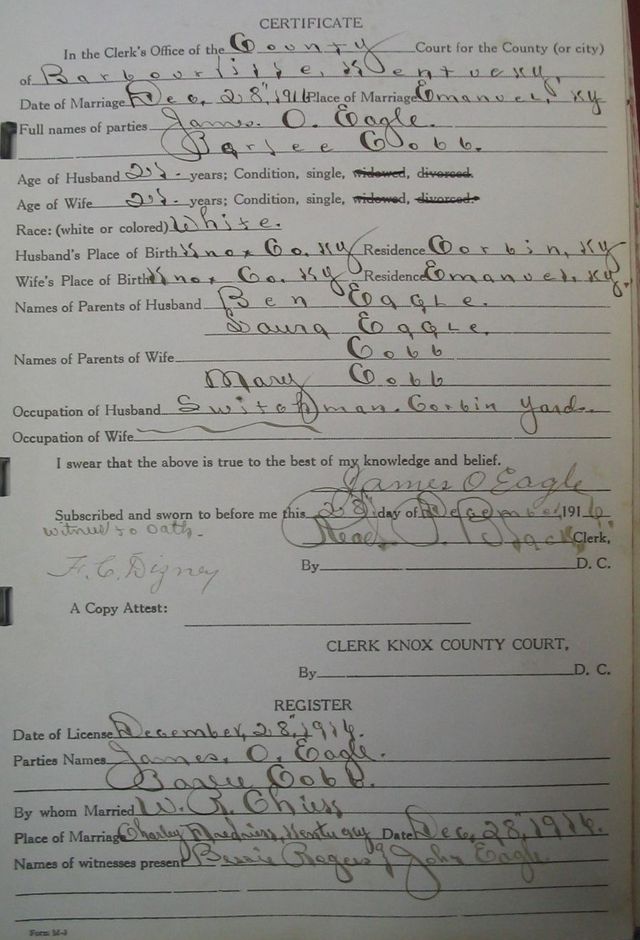 CERTIFICATE
In the Clerk's Office of the County Court for the County (or city)
of Barbourville, Kentucky,
Date of Marriage Dec, 28", 1916 Place of Marriage Emanuel, Ky
Full names of parties James. O. Eagle.
Cobb.
Age of Husband 21. years; Condition, single, widowed, divorced.
Age of Wife 21. years; Condition, single, widowed, divorced.
Race: (white or colored) White.
Husband's Place of Birth Knox Co. Ky Residence Corbin, Ky
Wife's Place of Birth Knox Co. Ky Residence Emanuel, Ky.
Names of Parents of Husband Ben Eagle.
Laura Eagle.
Names of Parents of Wife Cobb
Mary Cobb
Occupation of Husband Switchman. Corbin Yard.
Occupation of Wife
I swear that the above is true to the best of my knowledge and belief.
James O Eagle
Subscribed and sworn to before me this 28" day of December 1916
Witness to Oath.
Read P. Black Clerk,
F. C. Dizney
By D. C.
A Copy Attest:
CLERK KNOX COUNTY COURT,
By D. C.
REGISTER
Date of License December, 28", 1916.
Parties Names James, O, Eagle.
Cobb.
By whom Married W. R.
Place of Marriage Charley Kentucky Date Dec, 28", 1916.
Names of witnesses present Bessie Rogers & John Eagle
Form M-3